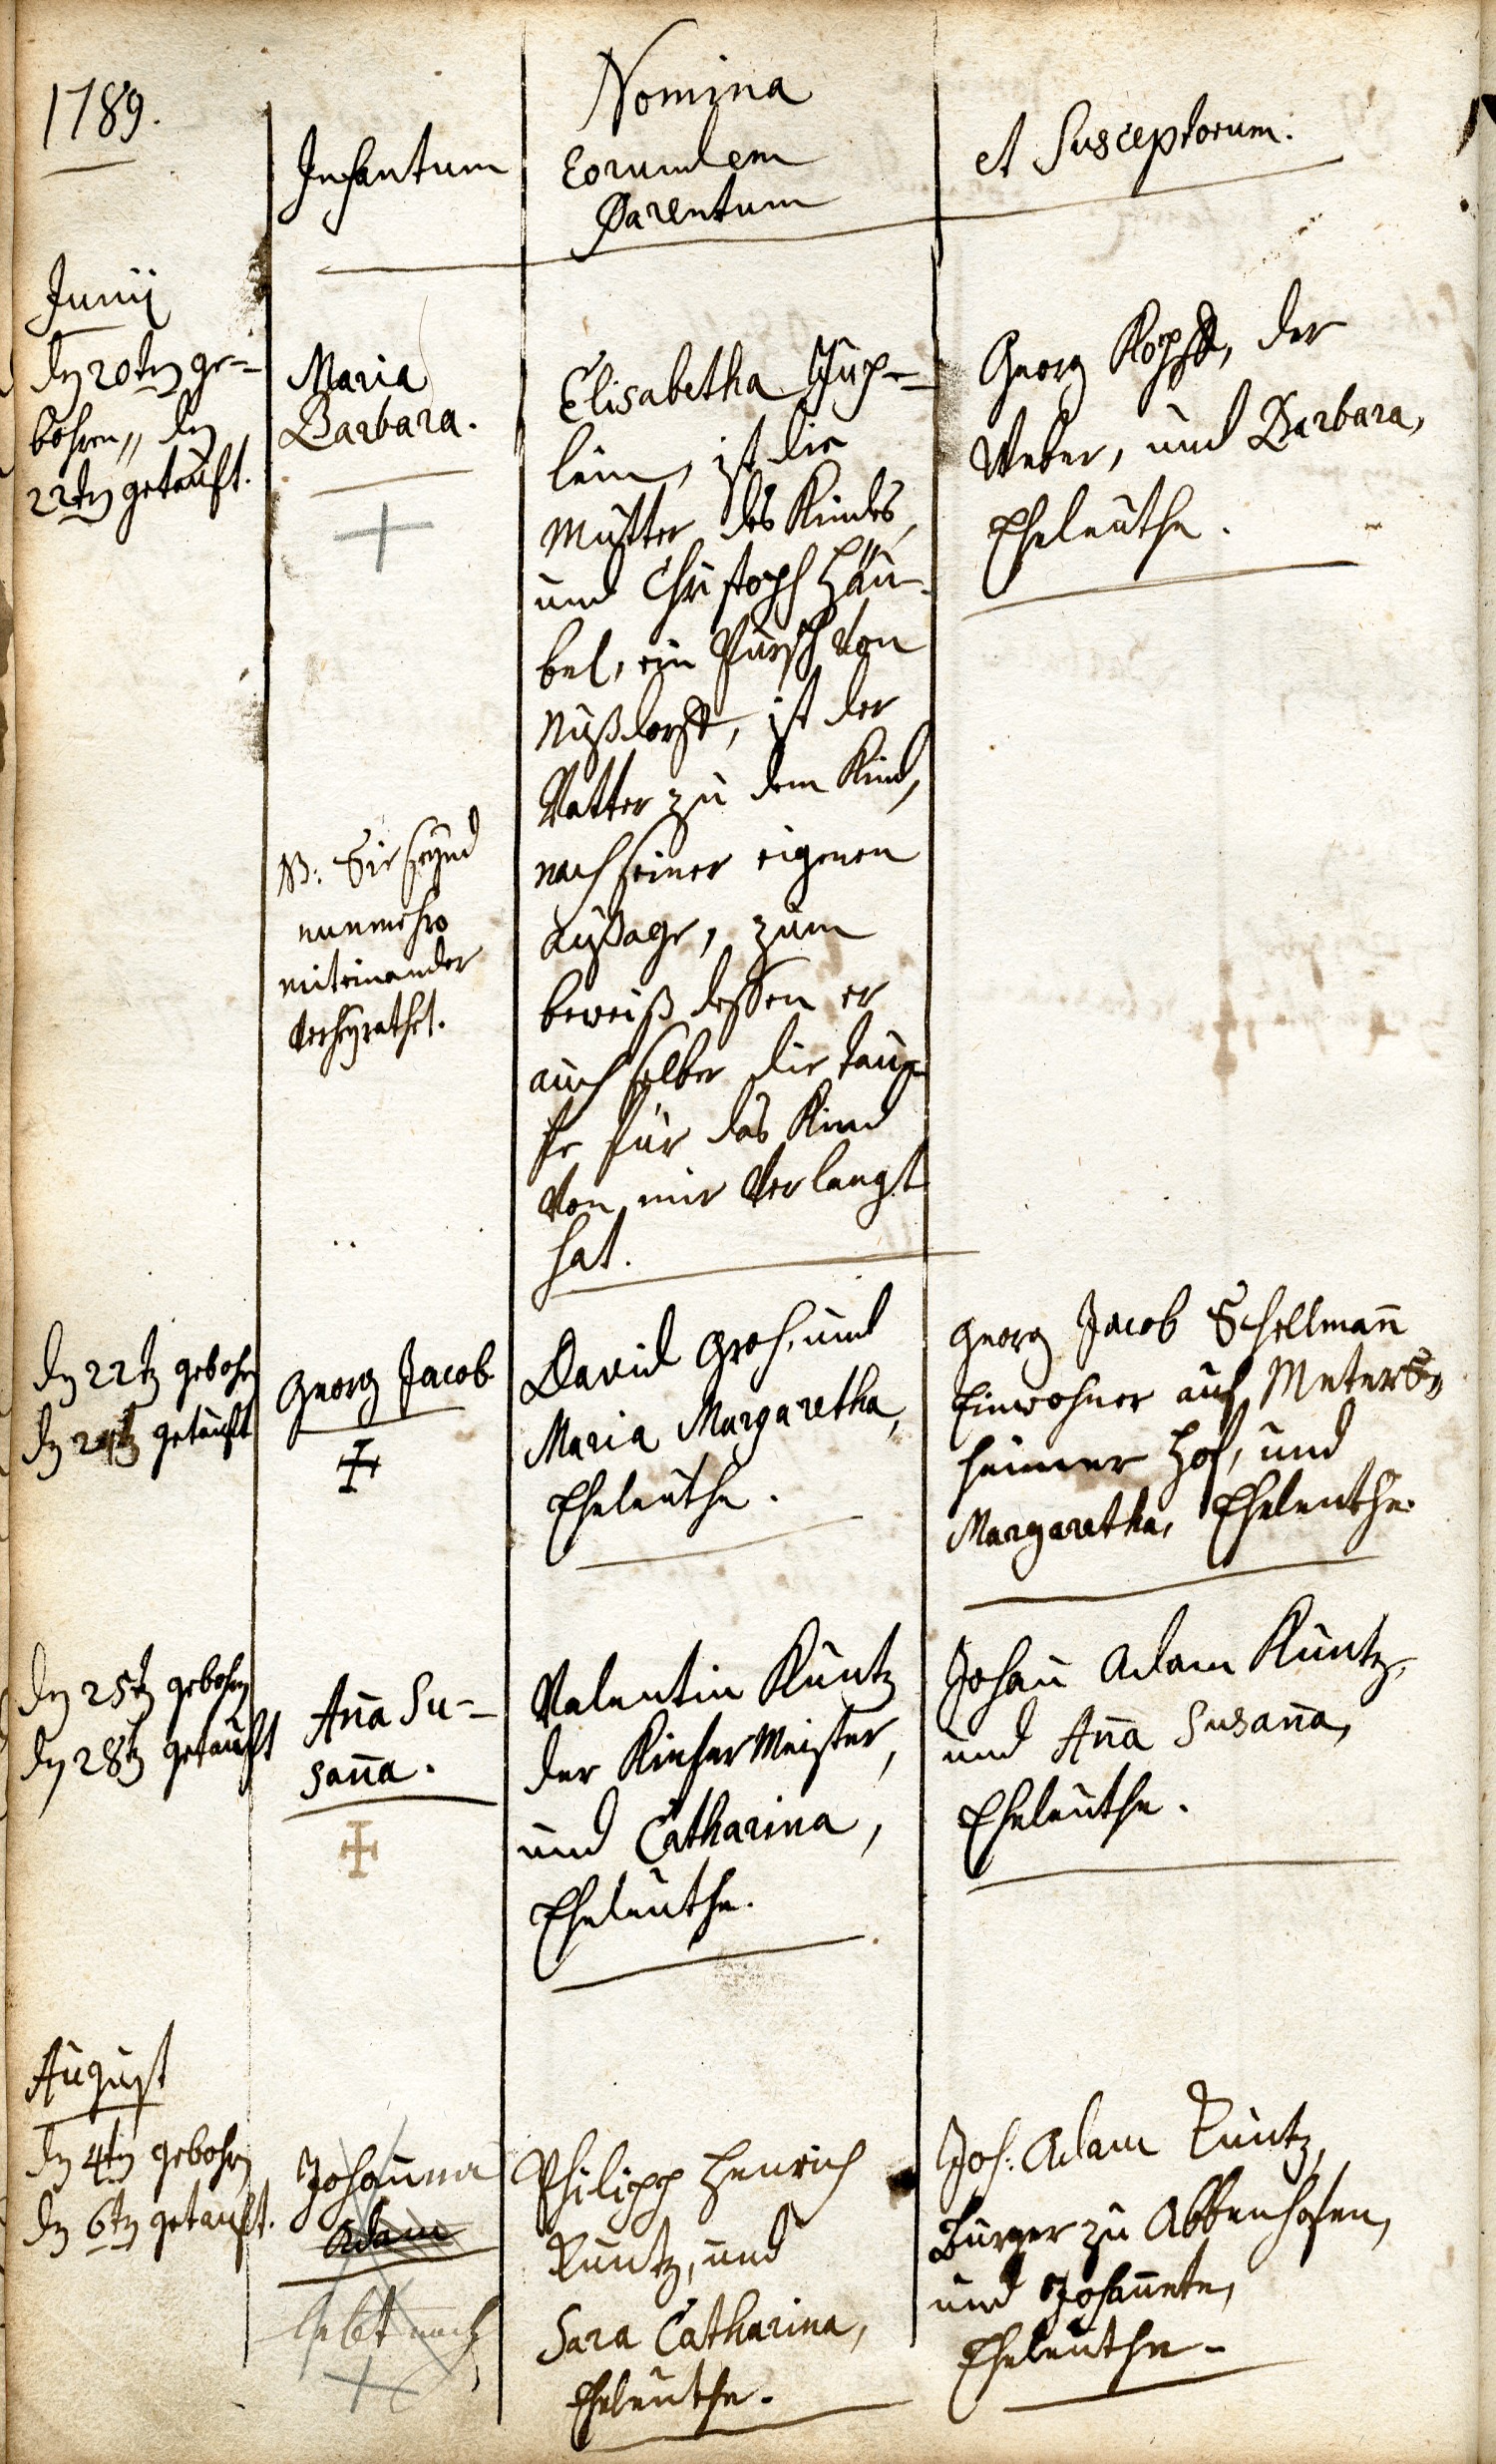 1789.
Nomina
Infantum
Eorundem
Parentum
et Susceptorum.
Junij
den 20ten ge-
bohren, den
22ten getauft.
Maria
Barbara.
Elisabetha
lein, ist die
Mutter des Kindes,
und Christoph Häu-
bel, ein Pursch von
Nußdorff, ist der
Vatter zu dem Kind,
nach seiner eigenen
Aussage, zum
beweiß dessen er
auch selber die Tau-
fe für das Kind
von mir verlangt
hat.
NB: Sie seynd
nunmehro
miteinander
verheyrathet.
Georg Kopff, der
Weber, und Barbara,
Eheleuthe.
den 22t gebohren
den 24t getauft
Georg Jacob
David Groh, und
Maria Margaretha,
Eheleuthe.
Georg Jacob Schellmann̄
Einwohner auf Meters-
heimer Hof, und
Margaretha, Eheleuthe.
den 25t gebohren
den 28t getauft
Ana Su-
sana.
Valentin Kuntz
der Kiefer Meister,
und Catharina,
Eheleuthe.
Johan Adam Kuntz,
und Ana Susana,
Eheleuthe.
August
den 4ten gebohren
den 6ten getauft.
Johanna
Adam
lebt noch
Philipp Henrich
Kuntz, und
Sara Catharina,
Eheleuthe.
Joh: Adam Kuntz,
Bürger zu Abbenhofen,
und Johannete,
Eheleuthe.